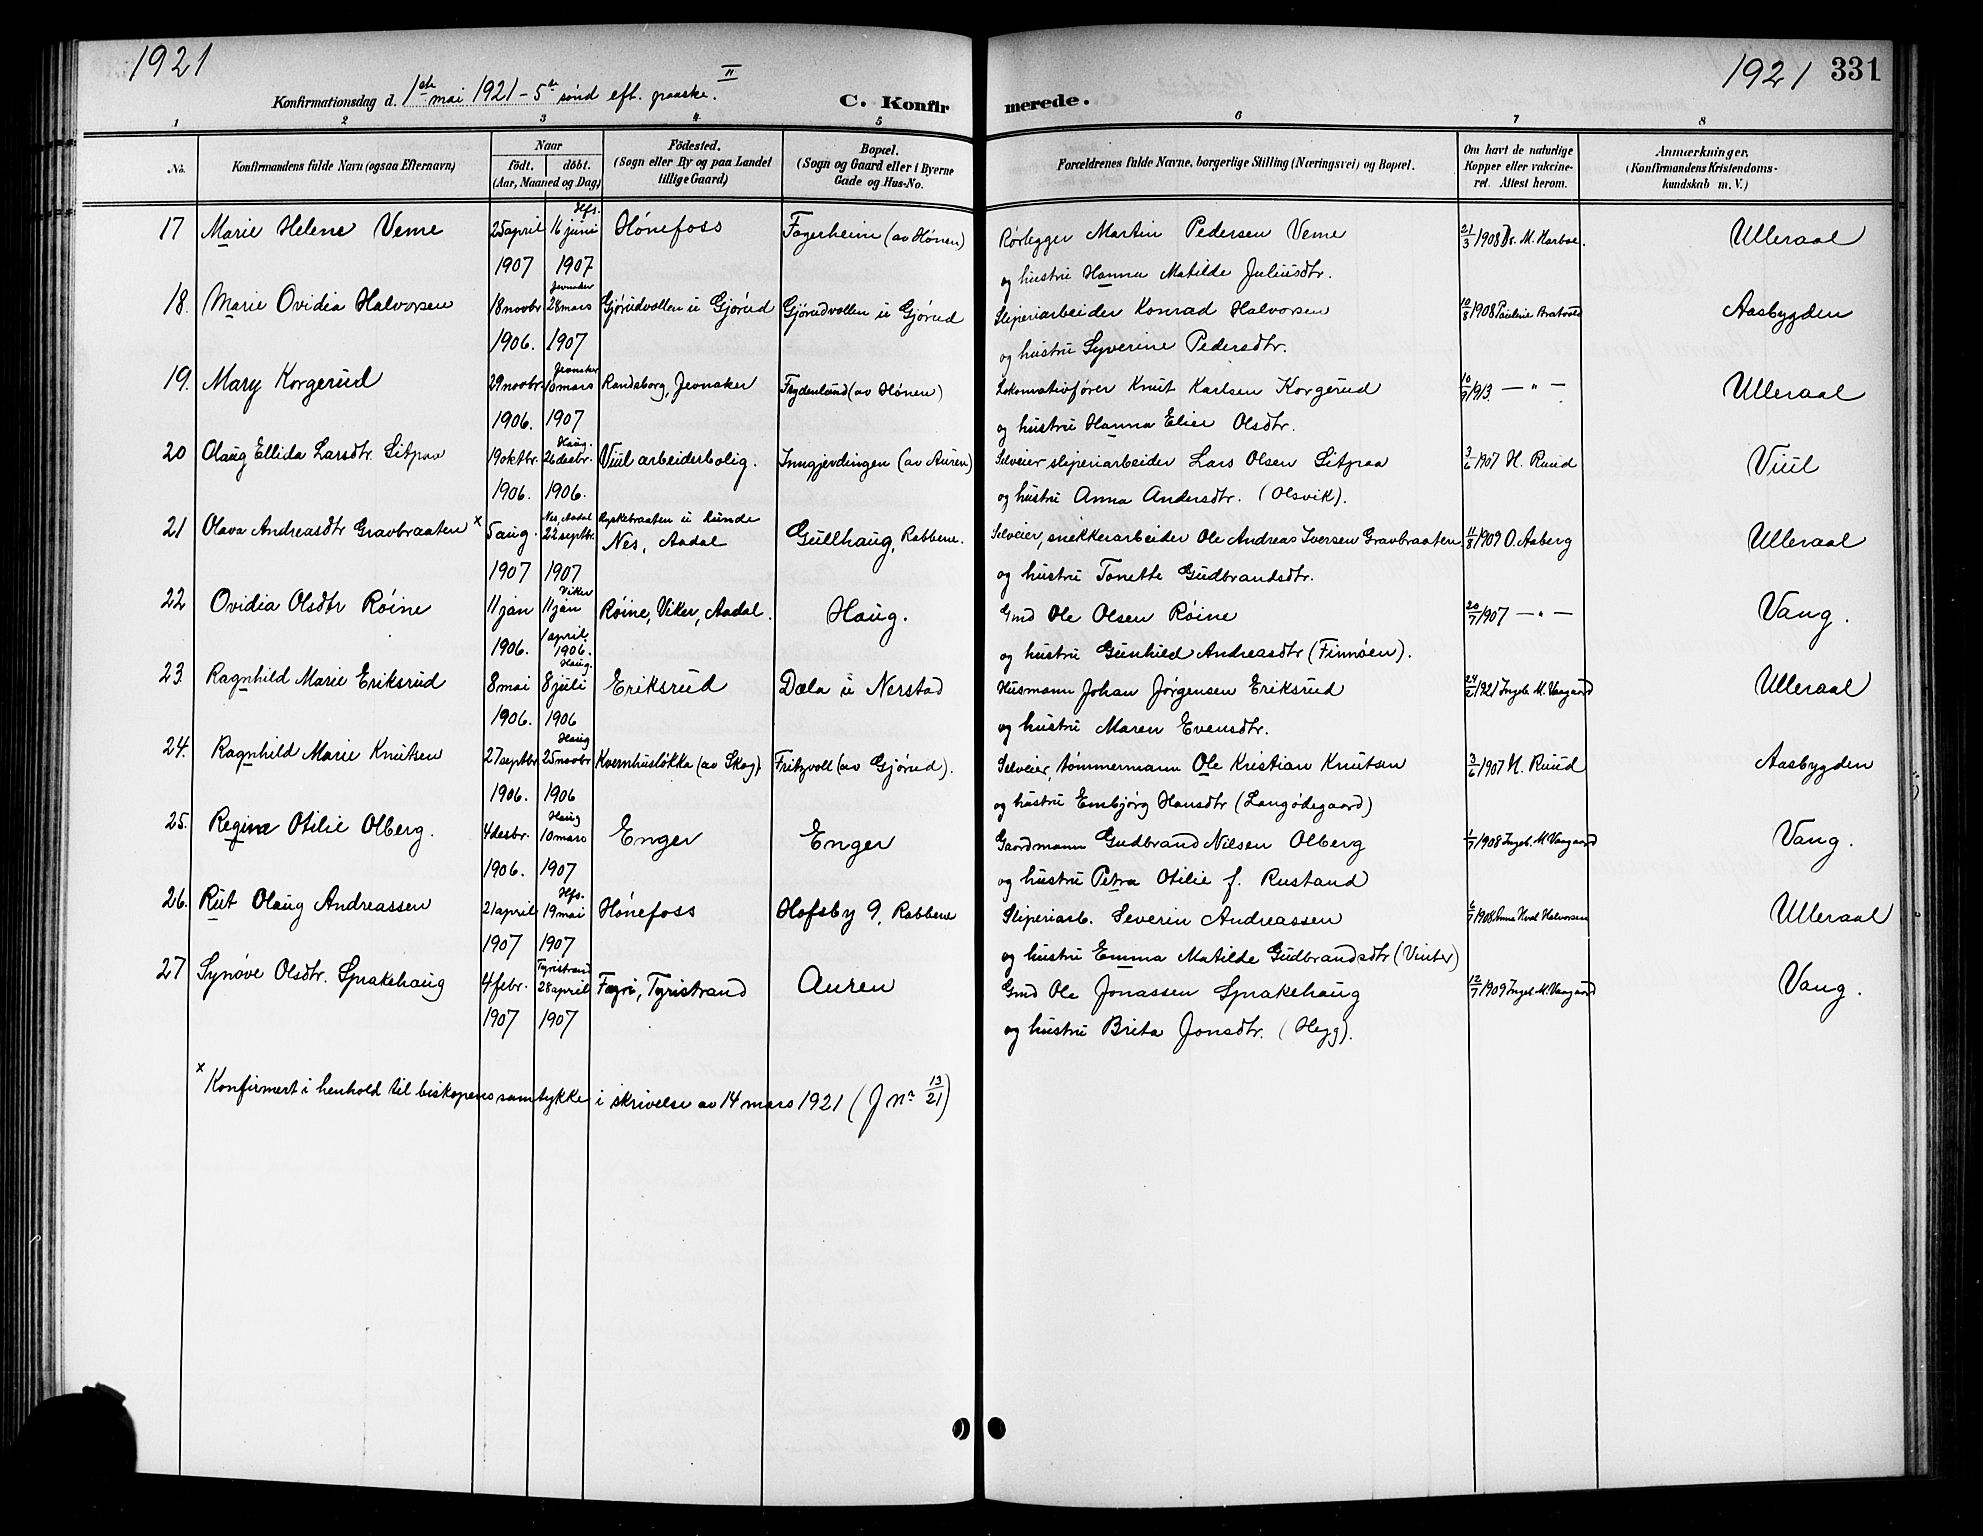 1921
1921 331
Konfirmationsdag d. 1ste mai 1921 - 5te sönd eft. paaske. II
C. Konfirmerede.
1 2 3 4 5 6 7 8
No.
Konfirmandens fulde Navn (ogsaa Efternavn)
Naar
födt. döbt.
(Aar, Maaned og Dag)
Födested.
(Sogn eller By og paa Landet
tillige Gaard)
Bopæl.
(Sogn og Gaard eller i Byerne
Gade og Hus-No.
Forældrenes fulde Navne, borgerlige Stilling (Næringsvei) og Bopæl.
Om havt de naturlige
Kopper eller vakcine-
ret. Attest herom.
Anmærkninger.
(Konfirmandens Kristendoms-
kundskab m. V.)
17 Marie Helene Veme 25 april 1907 Hfs. 16 juni 1907 Hönefoss Fagerheim (av Hönen) Rörlegger Martin Pedersen Veme 21/3 1908 Dr. M. Harboe. Ulleraal
og hustru Hanna Matilde Juliusdtr.
18. Marie Ovidia Halvorsen 18 novbr 1906. Jevnaker 28 mars 1907 Gjörudvollen u Gjörud Gjörudvollen u Gjörud Sliperiarbeider Konrad Halvorsen 10/8 1908 Pauline Aasbygden
og hustru Syverine Pedersdtr.
19. Mary Korgerud 29 novbr. 1906. Jevnaker 10 mars 1907 Randsborg, Jevnaker Frydenlund (av Hönen) Lokomotivförer Knut Karlsen Korgerud 10/9 1913. — " — Ulleraal
og hustru Hanna Elise Olsdtr.
20 Olaug Ellida Larsdtr. Sitpaa 19 oktbr. 1906. Haug. 26 desbr. 1906. Viul arbeiderbolig. Inngjerdingen (av Auren) Selveier sliperiarbeider Lars Olsen Sitpaa 3/6 1907 H. Ruud Viul
og hustru Anna Andersdtr. (Olsvik).
21 Olava Andreasdtr Gravbraaten x 5 aug. 1907 Nes, Aadal 22 septbr. 1907 Ryskebraaten u Lunde Nes, Aadal Gullhaug, Rabbene. Selveier, snekkerarbeider Ole Andreas Iversen Gravbraaten 11/8 1909 O. Aaberg Ulleraal
og hustru Tonette Gudbrandsdtr.
22 Ovidia Olsdtr Röine 11 jan 1906. Viker 11 jan 1 april 1906. Röine, Viker, Aadal. Haug. Gmd Ole Olsen Röine 20/7 1907 — " — Vang.
og hustru Gunhild Andreasdtr (Finnöen).
23 Ragnhild Marie Eriksrud 8 mai 1906. Haug. 8 juli 1906 Eriksrud Dæla u Nerstad Husmann Johan Jörgensen Eriksrud 24/2 1921 Ingeb. M. Vaagaard Ulleraal
og hustru Maren Evensdtr.
24. Ragnhild Marie Knutsen 27 septbr 1906. Haug 25 novbr 1906 Kvernhuslökka (av Skog) Fritzvoll (av Gjörud). Selveier, tömmermann Ole Kristian Knutsen 3/6 1907 H. Ruud Aasbygden
og hustru Embjörg Hansdtr (Langödegaard)
25. Regine Otilie Olberg. 4 desbr. 1906. Haug 10 mars 1907 Enger Enger Gaardmann Gudbrand Nilsen Olberg 1/7 1908 Ingeb. M. Vaagaard Vang.
og hustru Petra Otilie f. Rustand
26. Rut Olaug Andreassen 21 april 1907 Hfs. 19 mai 1907 Hönefoss Hofsby 9, Rabbene Sliperiarb. Severin Andreassen 6/7 1908 Anna Hval Halvorsen Ulleraal
og hustru Emma Matilde Gudbrandsdtr (Vinter)
27 Synöve Olsdtr. Sprakehaug 4 febr. 1907 Tyristrand 28 april 1907 Fægri, Tyristrand Auren Gmd Ole Jonassen Sprakehaug 12/7 1909 Ingeb. M. Vaagaard Vang.
og hustru Brita Jonsdtr. (Hegg).
x Konfirmert i henhold til biskopens samtykke i skrivelse av 14 mars 1921 (J nr. 13/21)